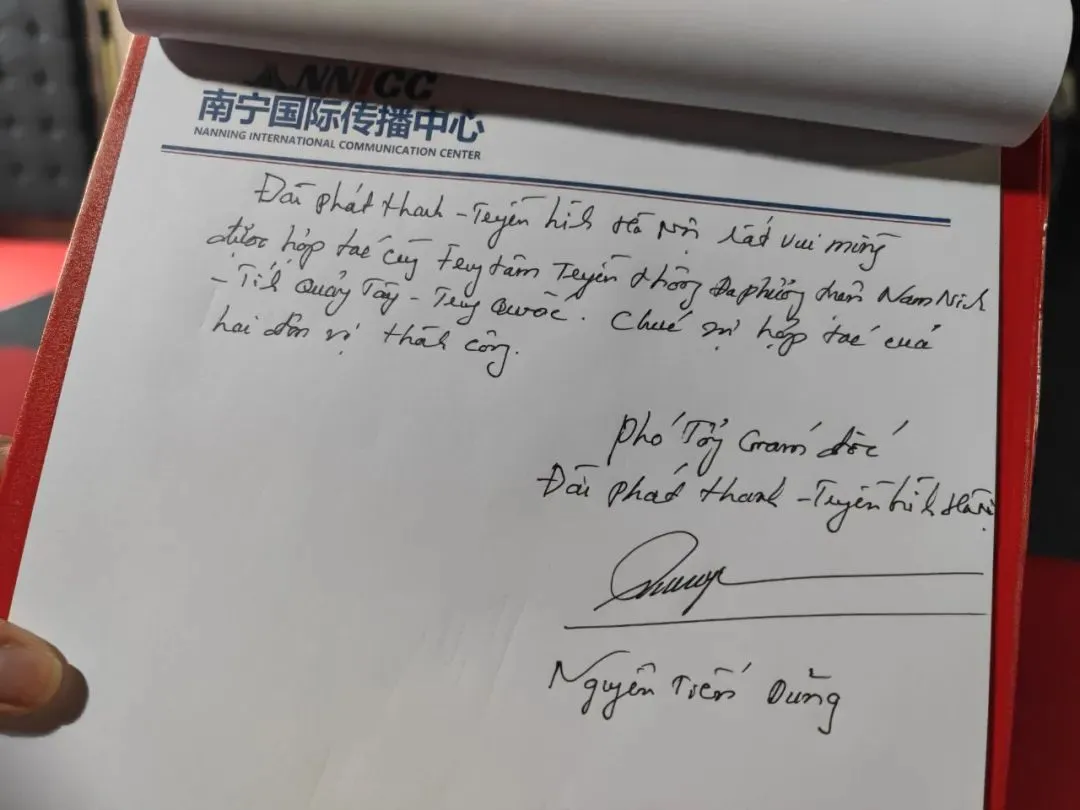 NNICC
南宁国际传播中心
NANNING INTERNATIONAL COMMUNICATION CENTER
Đài phát thanh - Truyền hình Hà Nội rất vui mừng
được hợp tác cùng Trung tâm Truyền thông Đa phương tiện Nam Ninh
- Tỉnh Quảng Tây - Trung Quốc. Chúc sự hợp tác của
hai đơn vị thành công.
Phó Tổng Giám đốc
Đài phát thanh - Truyền hình Hà Nội
Nguyễn Tiến Dũng